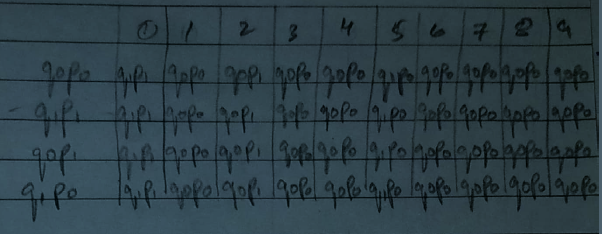 0 1 2 3 4 5 6 7 8 9
q0p0 q1p1 q0p0 q0p1 q0p0 q0p0 q1p0 q0p0 q0p0 q0p0 q0p0
q1p1 q1p1 q0p0 q0p1 q0p0 q0p0 q1p0 q0p0 q0p0 q0p0 q0p0
q0p1 q1p1 q0p0 q0p1 q0p0 q0p0 q1p0 q0p0 q0p0 q0p0 q0p0
q1p0 q1p1 q0p0 q0p1 q0p0 q0p0 q1p0 q0p0 q0p0 q0p0 q0p0